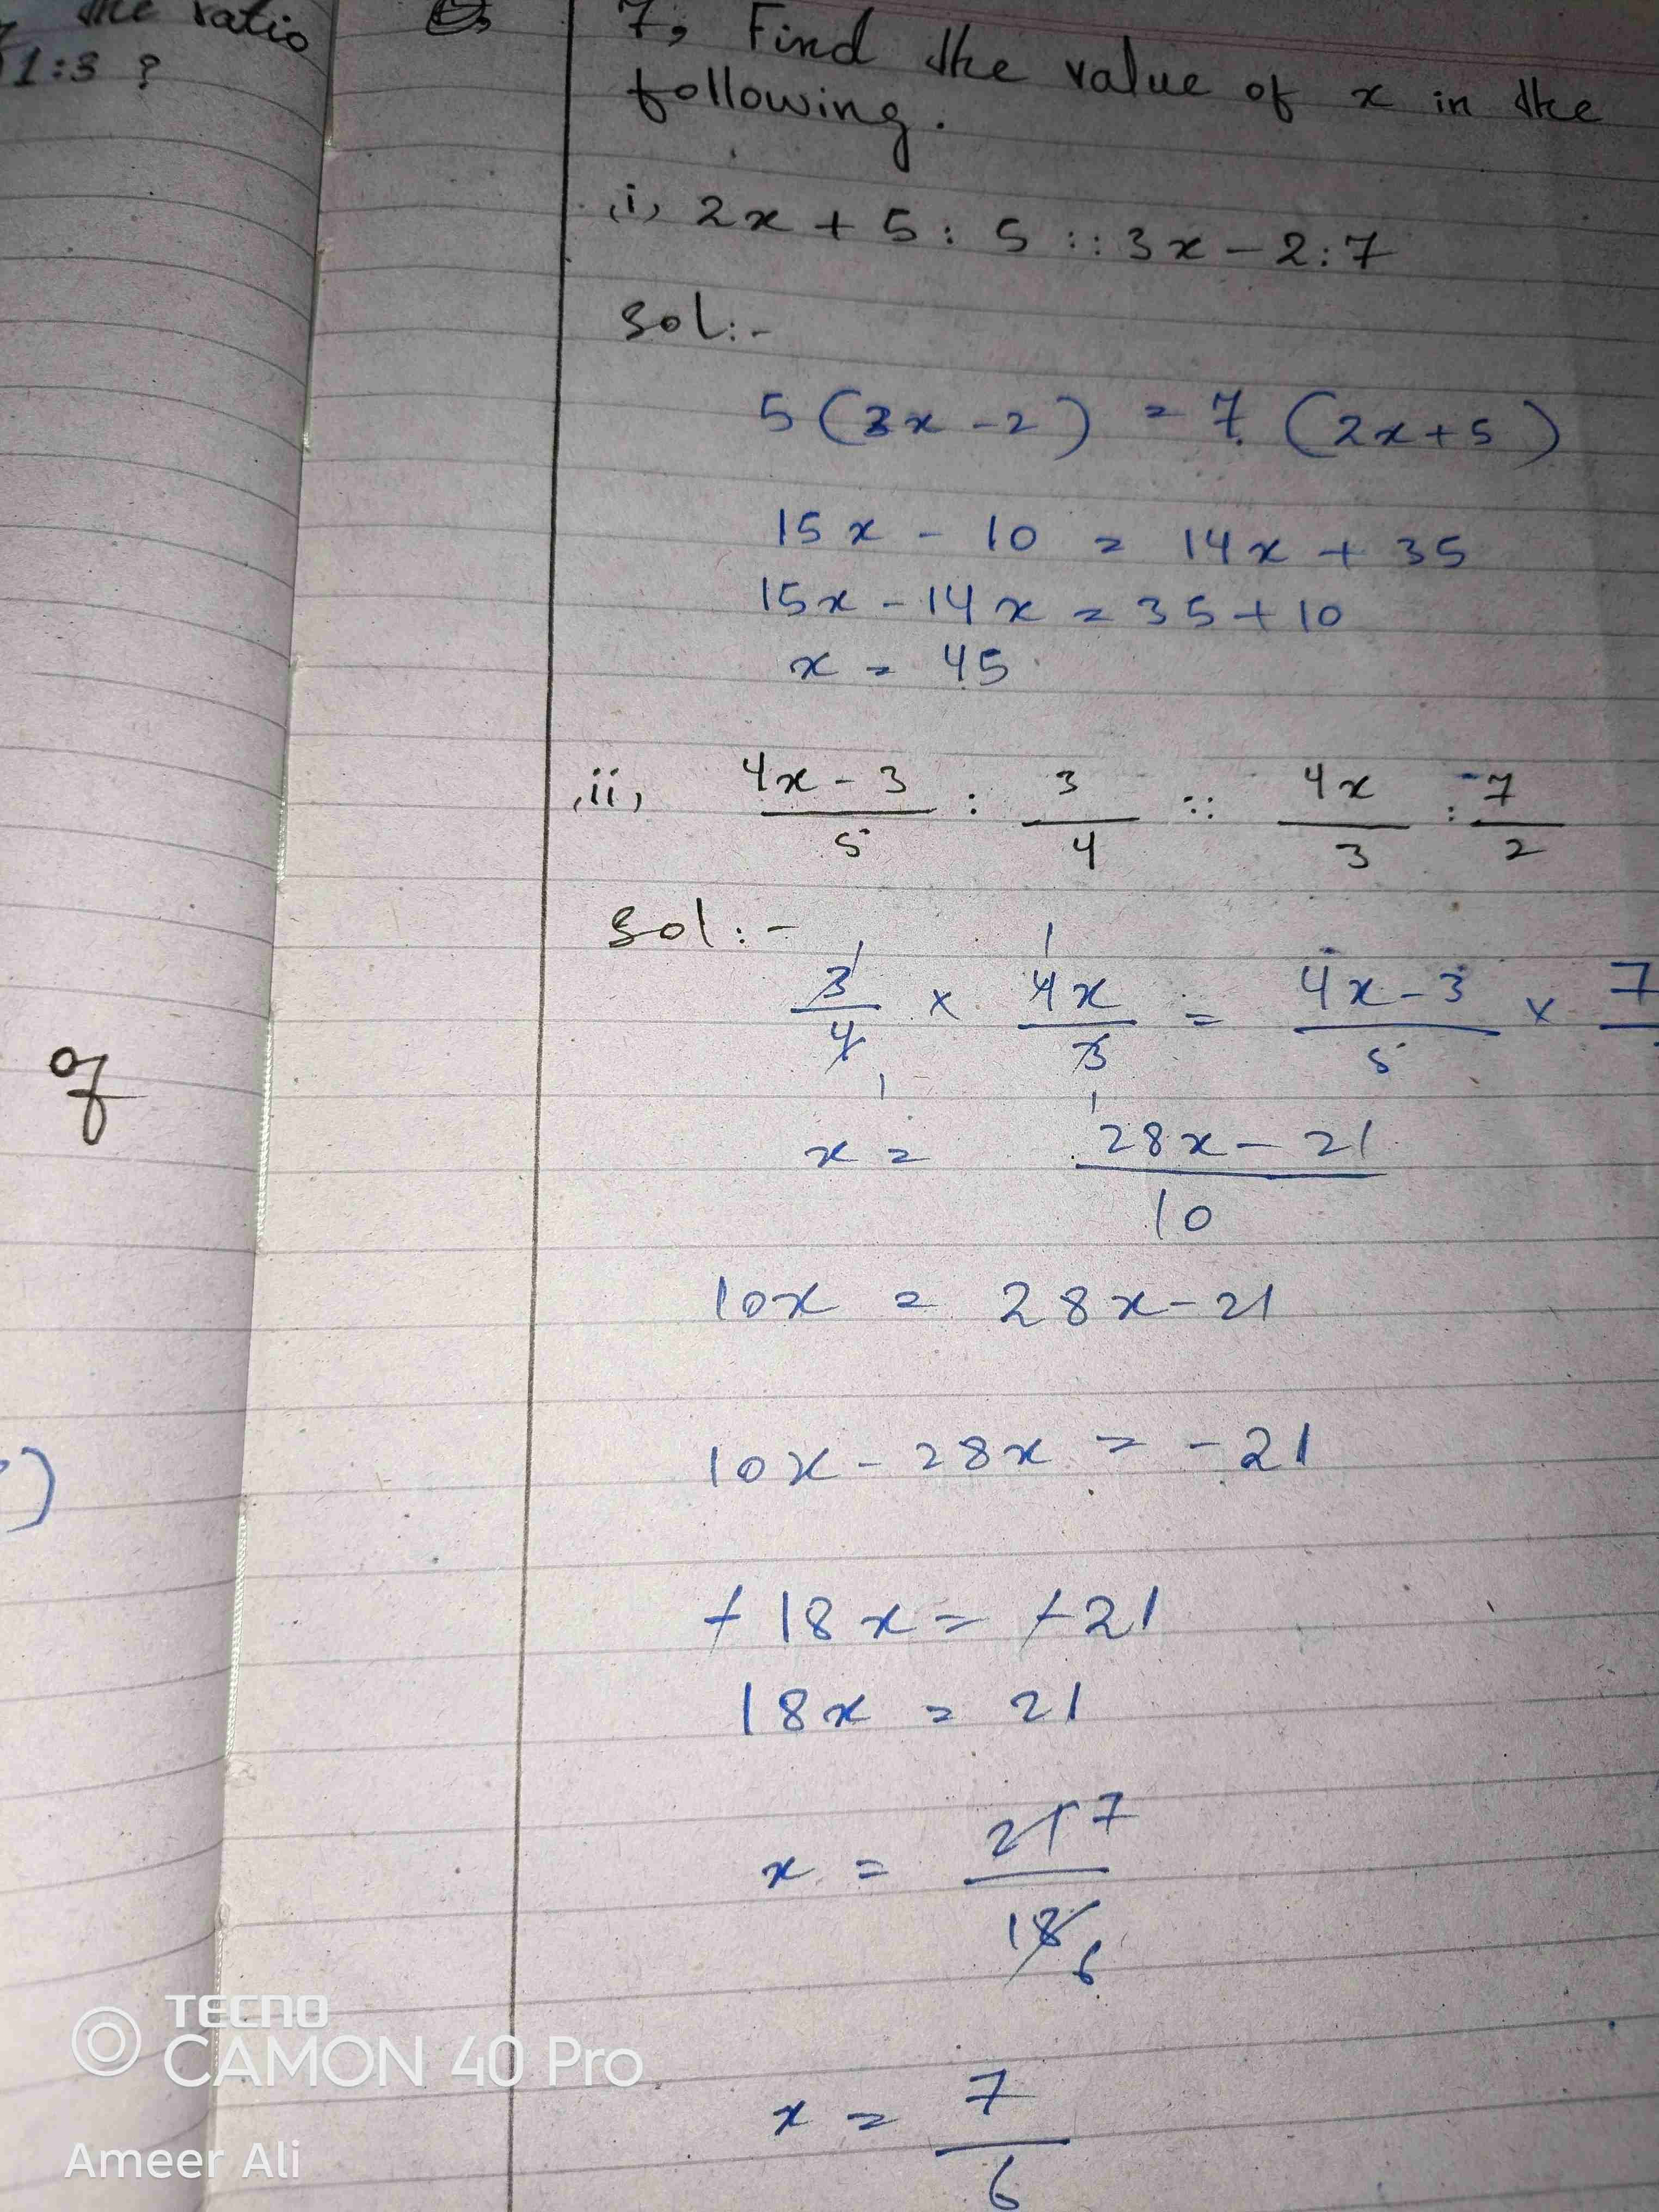 the ratio
1:3 ?
of
)
7, Find the value of x in the
following.
(i) 2x + 5 : 5 :: 3x - 2 : 7
Sol:-
5 (3x - 2) = 7 (2x + 5)
15x - 10 = 14x + 35
15x - 14x = 35 + 10
x = 45
(ii) 4x - 3 / 5 : 3 / 4 :: 4x / 3 : 7 / 2
Sol:-
3 / 4 × 4x / 3 = 4x - 3 / 5 × 7
1 1 1 1
x = 28x - 21 / 10
10x = 28x - 21
10x - 28x = - 21
- 18x = - 21
18x = 21
x = 21 7 / 18 6
x = 7 / 6
TECNO
CAMON 40 Pro
Ameer Ali